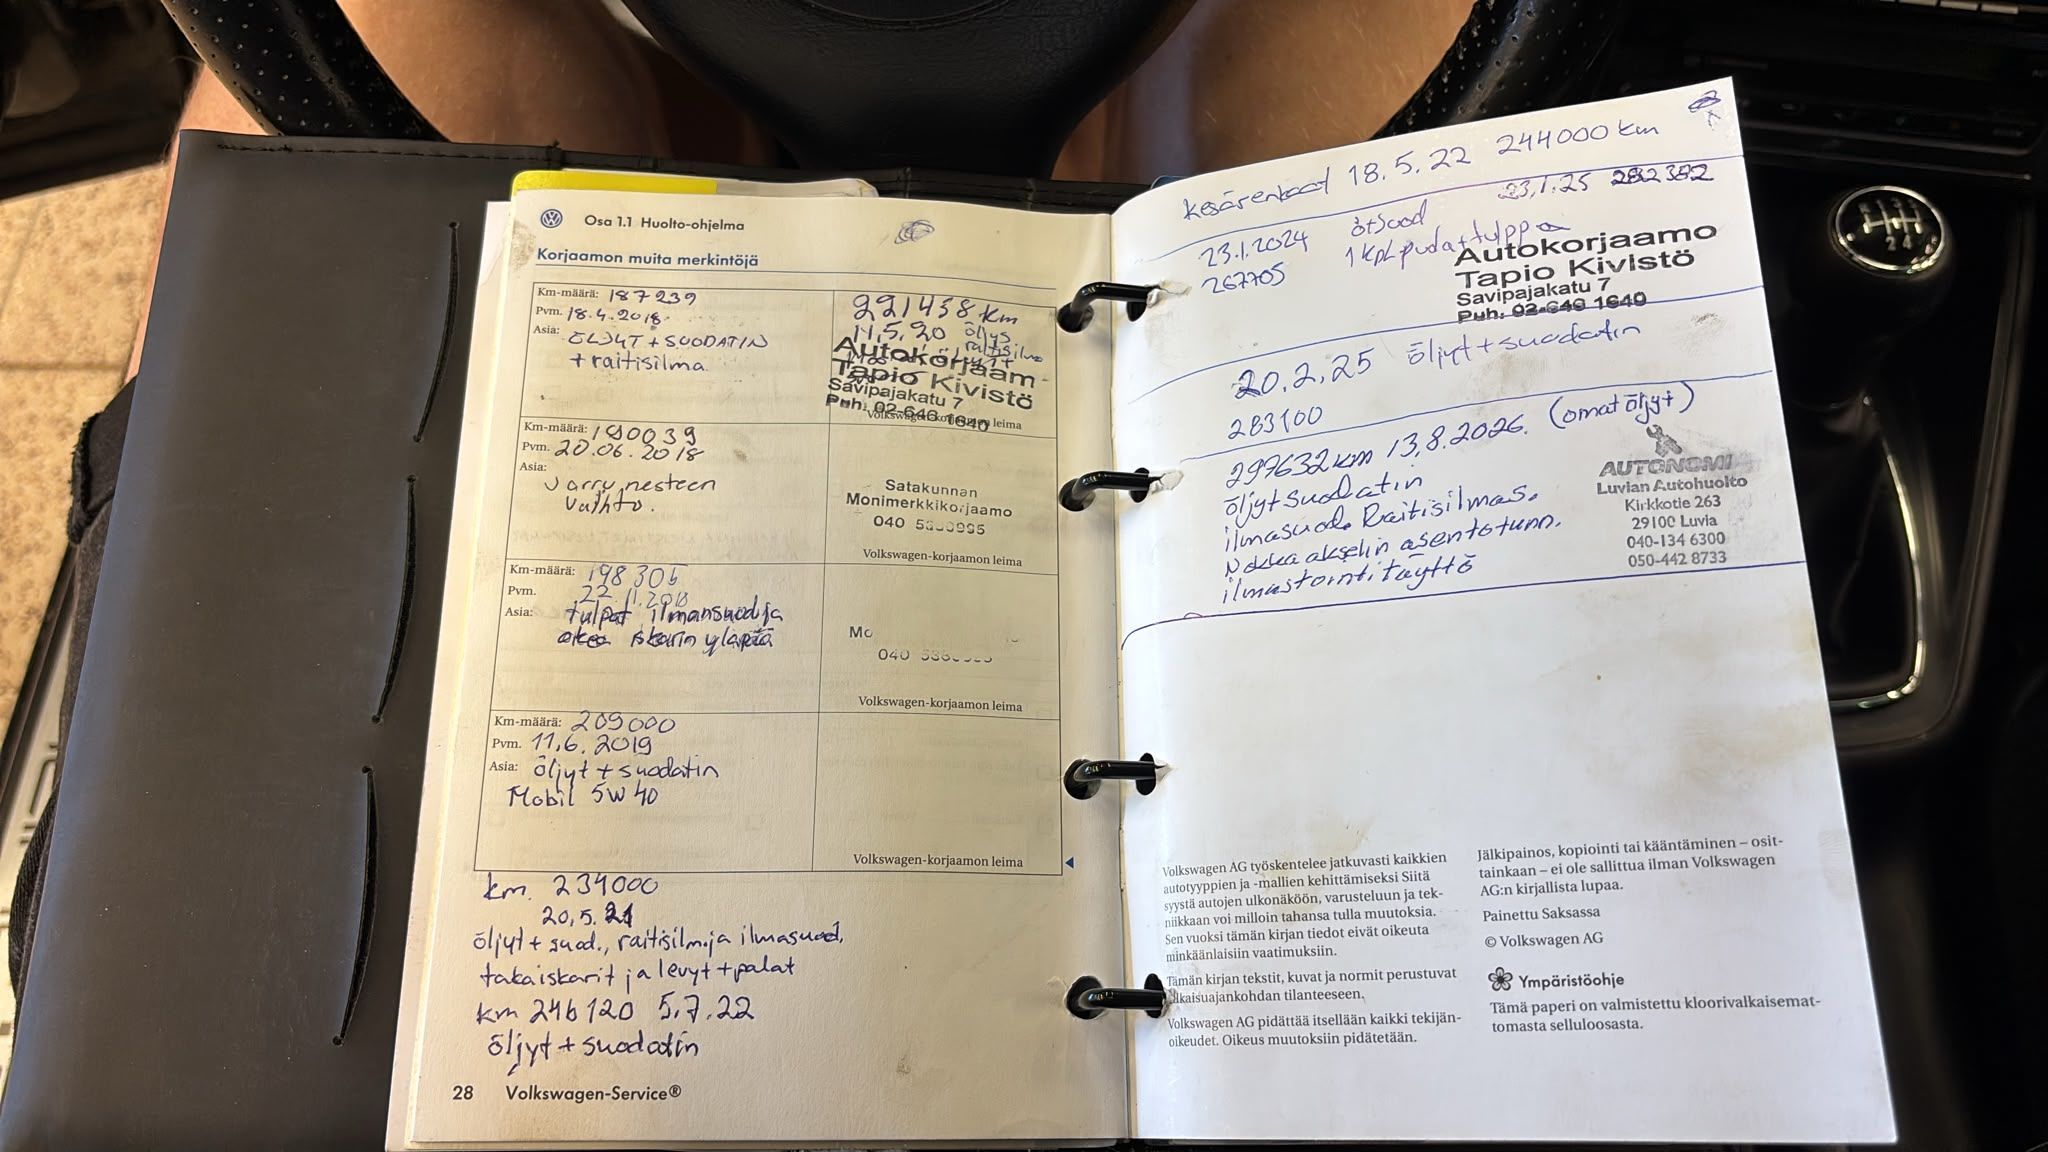 Osa 1.1 Huolto-ohjelma
Korjaamon muita merkintöjä
Km-määrä: 187239
Pvm. 18.4.2018
Asia: ÖLJYT + SUODATIN
+ raitisilma
221438 km
11,5,20 öljyt
raitisilma
Autokorjaam
Tapio Kivistö
Savipajakatu 7
Puh. 02-646 1640
Volkswagen-korjaamon leima
Km-määrä: 190039
Pvm. 20.06.2018
Asia:
Jarrunesteen
Vaihto.
Satakunnan
Monimerkkikorjaamo
040
Volkswagen-korjaamon leima
Km-määrä: 198306
Pvm. 22.11.2018
Asia: tulpat ilmansuod ja
iskarin yläpää
040
Volkswagen-korjaamon leima
Km-määrä: 209000
Pvm. 11,6.2019
Asia: öljyt + suodatin
Mobil 5W40
Volkswagen-korjaamon leima
km. 234000
20,5.21
öljyt + suod., raitisilm.ja ilmasuod.
takaiskarit ja levyt+palat
km 246120 5.7.22
öljyt + suodatin
28 Volkswagen-Service®
Kesärenkaat 18.5.22 244000 km
23.1.25 282382
23.1.2024 öt+suod
267705 1 kpl tulppa
Autokorjaamo
Tapio Kivistö
Savipajakatu 7
Puh. 02-646 1640
20.2.25 öljyt+suodatin
283100
297632km 13,8.2026. (omat öljyt)
öljytsuodatin
ilmasuod. Raitisilmas.
Nokka akselin asentotunn.
ilmastointi täyttö
AUTONOMI
Luvian Autohuolto
Kirkkotie 263
29100 Luvia
040-134 6300
050-442 8733
Volkswagen AG työskentelee jatkuvasti kaikkien
autotyyppien ja -mallien kehittämiseksi Siitä
syystä autojen ulkonäköön, varusteluun ja tek-
niikkaan voi milloin tahansa tulla muutoksia.
Sen vuoksi tämän kirjan tiedot eivät oikeuta
minkäänlaisiin vaatimuksiin.
Tämän kirjan tekstit, kuvat ja normit perustuvat
julkaisuajankohdan tilanteeseen.
Volkswagen AG pidättää itsellään kaikki tekijän-
oikeudet. Oikeus muutoksiin pidätetään.
Jälkipainos, kopiointi tai kääntäminen – osit-
tainkaan – ei ole sallittua ilman Volkswagen
AG:n kirjallista lupaa.
Painettu Saksassa
© Volkswagen AG
Ympäristöohje
Tämä paperi on valmistettu kloorivalkaisemat-
tomasta selluloosasta.